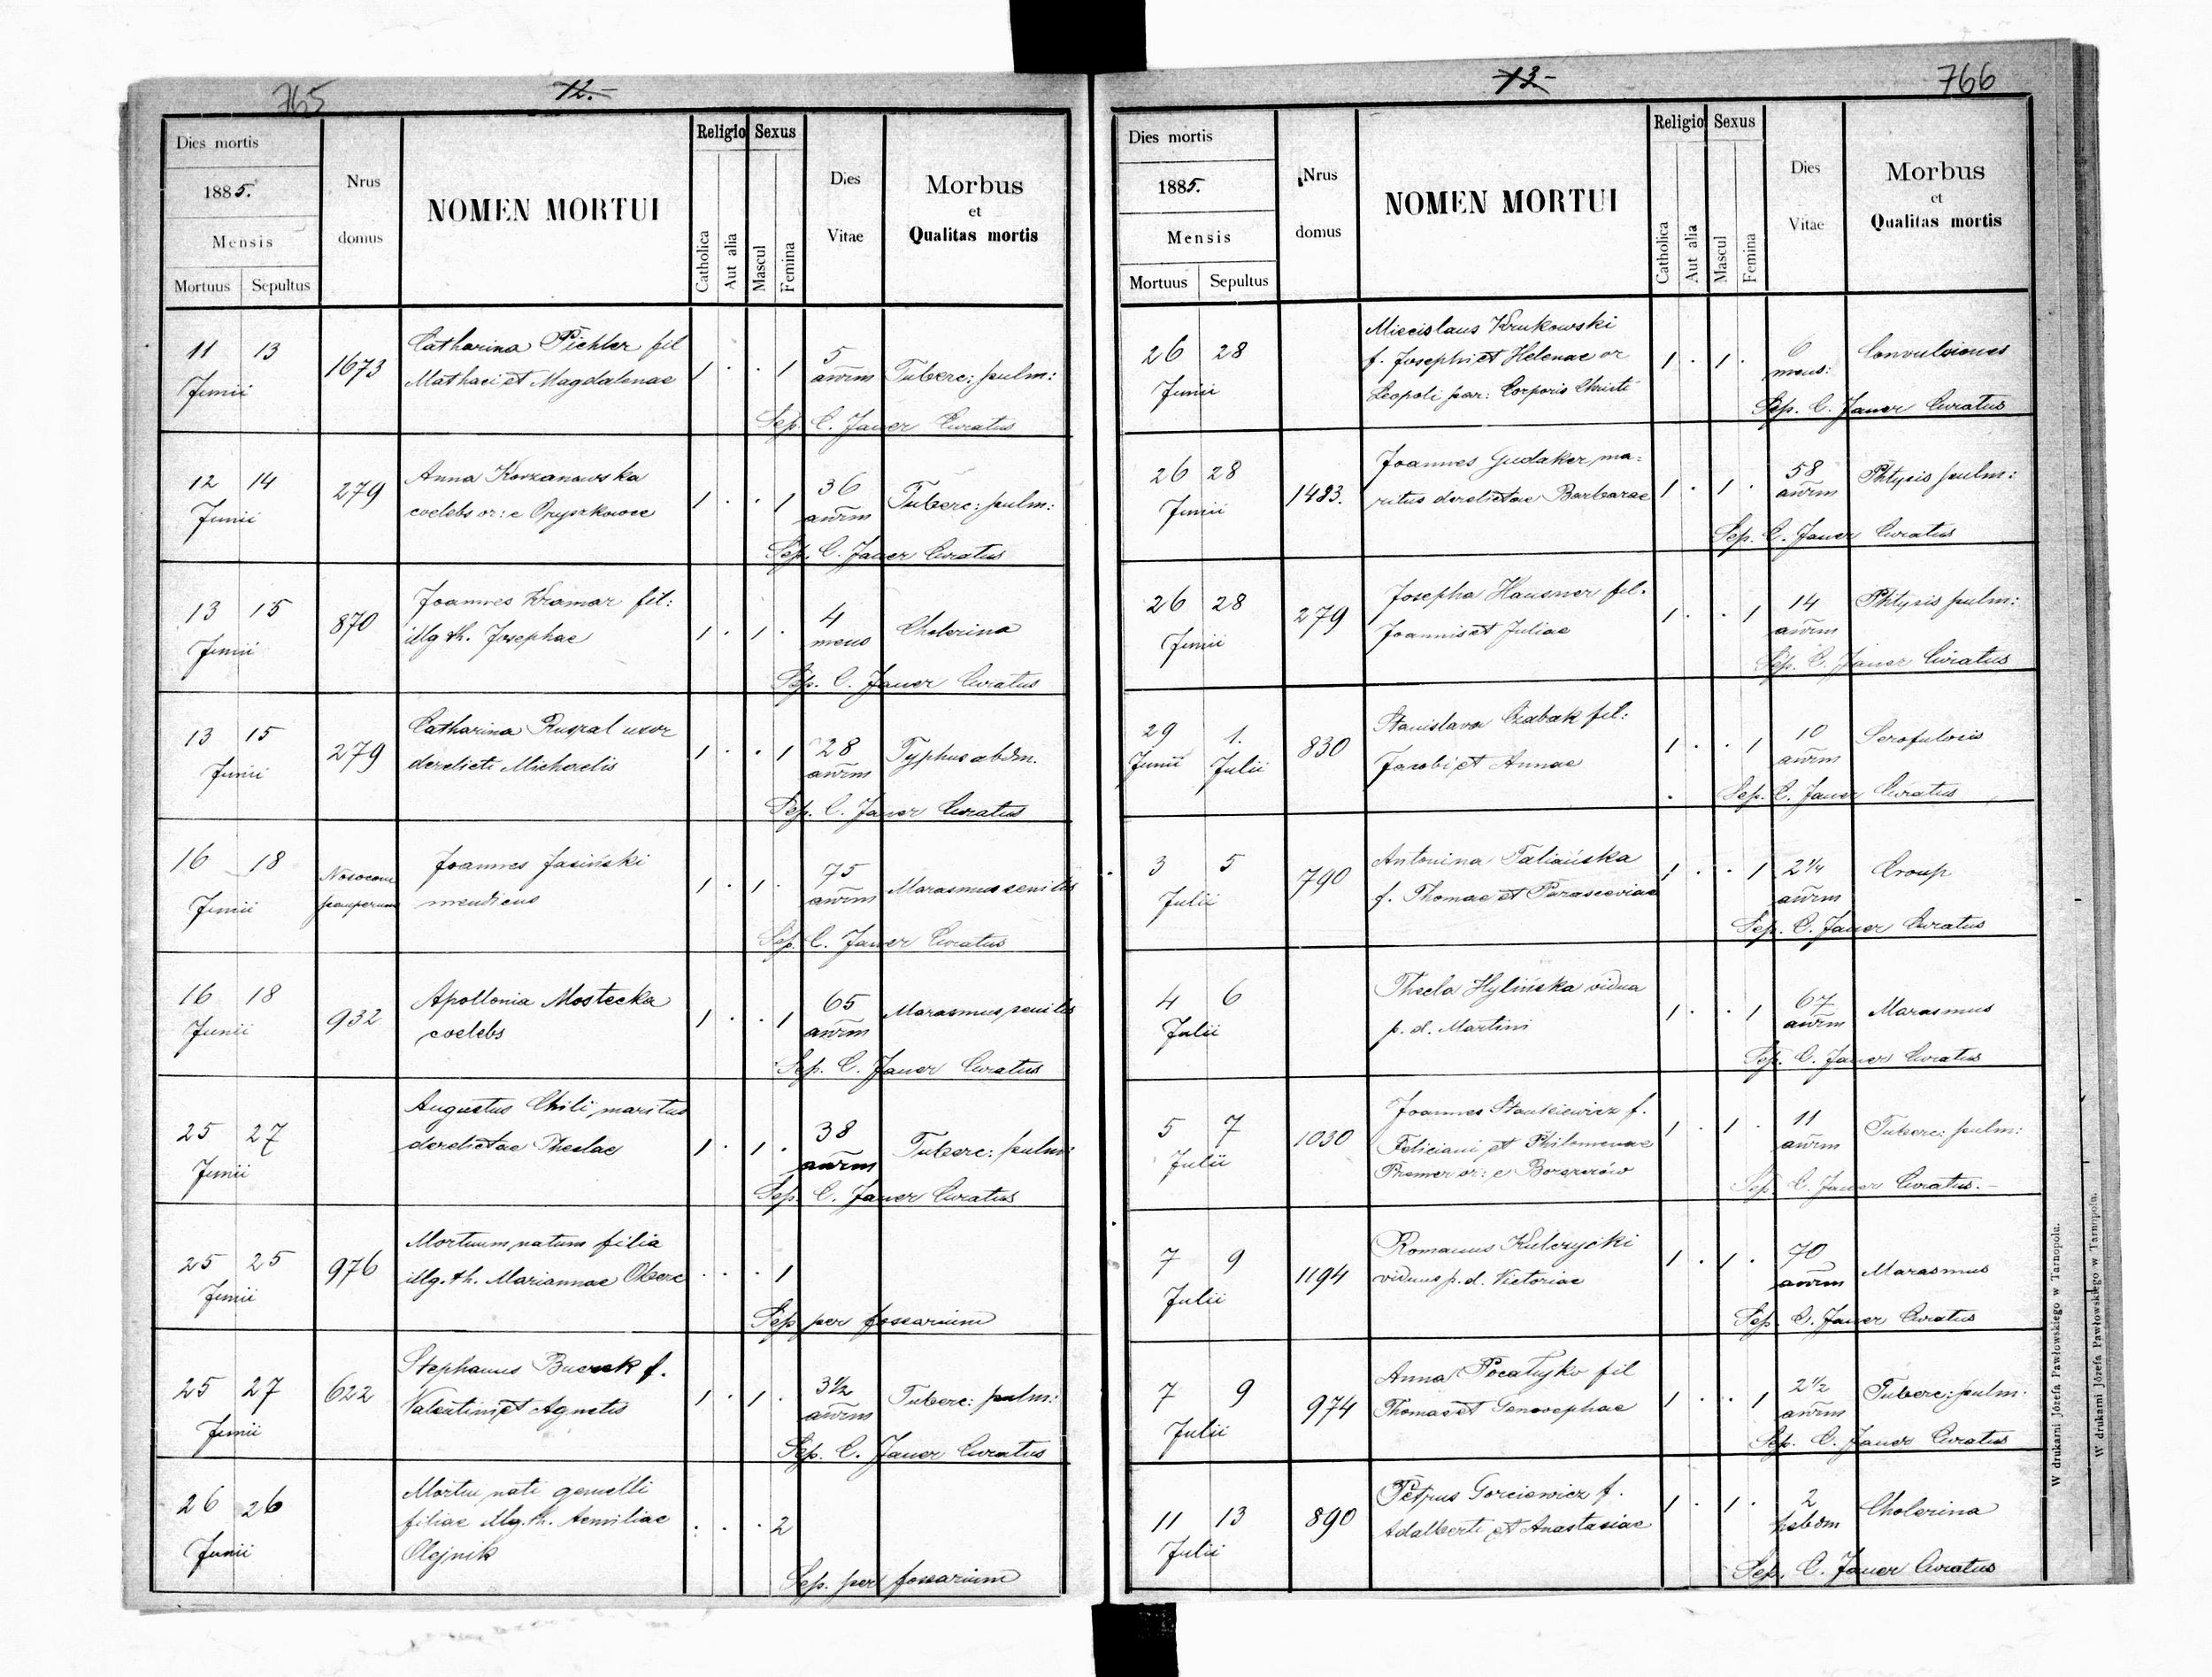 765
12.
Dies mortis
1885.
Mensis
Mortuus Sepultus
Nrus domus
NOMEN MORTUI
Religio
Catholica
Aut alia
Sexus
Mascul
Femina
Dies Vitae
Morbus
et
Qualitas mortis
11 13 1673 Catharina Pichler fil 1 . . 1 5
Junii Mathaei et Magdalenae annm Tuberc: pulm:
Sep. C. Jauer Curatus
12 14 279 Anna Korzanowska 1 . . 1 36 Tuberc: pulm:
Junii coelebs or: e Opryszkowce annm
Sep. C. Jauer Curatus
13 15 870 Joannes Kramar fil: 1 . 1 . 4 Cholerina
Junii illg th. Josephae mens
Sep. C. Jauer Curatus
13 15 279 Catharina Ruspal uxor 1 . . 1 28 Typhus abdm.
Junii derelicti Michaelis annm
Sep. C. Jauer Curatus
16 18 Nosocom Joannes Jasiński 1 . 1 . 75 Marasmus senilis
Junii pauperum mendicus annm
Sep. C. Jauer Curatus
16 18 932 Apollonia Mostecka 1 . . 1 65 Marasmus senilis
Junii coelebs annm
Sep. C. Jauer Curatus
25 27 Augustus Chili maritus 1 . 1 . 38 Tuberc: pulm:
Junii derelictae Theclae annm
Sep. C. Jauer Curatus
25 25 976 Mortuum natum filia . . . 1
Junii illg. th. Mariannae Oberc
Sep per fossarium
25 27 622 Stephanus Bucrek f. 1 . 1 . 3½ Tuberc: pulm:
Junii Valentini et Agnetis annm
Sep. C. Jauer Curatus
26 26 Mortui nati gemelli
Junii filiae illg. th. Aemiliae . . . 2
Olejnik
Sep. per fossarium
13
766
Dies mortis
1885.
Mensis
Mortuus Sepultus
Nrus domus
NOMEN MORTUI
Religio
Catholica
Aut alia
Sexus
Mascul
Femina
Dies Vitae
Morbus
et
Qualitas mortis
26 28 Miecislaus Krukowski 6 Convulsiones
Junii f. Josephi et Helenae or 1 . 1 . mens:
Leopoli par: Corporis Christi
Sep. C. Jauer Curatus
26 28 1483. Joannes Gudaker ma= 58 Phtysis pulm:
Junii ritus derelictae Barbarae 1 . 1 . annm
Sep. C. Jauer Curatus
26 28 279 Josepha Hausner fil. 1 . . 1 14 Phtysis pulm:
Junii Joannis et Juliae annm
Sep. C. Jauer Curatus
29 1. 830 Stanislava Czabak fil: 1 . . 1 10 Scrofulosis
Junii Julii Jacobi et Annae annm
Sep. C. Jauer Curatus
3 5 790 Antonina Taliańska 1 . . 1 2¼ Croup
Julii f. Thomae et Parasceviae annm
Sep. C. Jauer Curatus
4 6 Thecla Hylińska vidua 1 . . 1 67 Marasmus
Julii p. d. Martini annm
Sep. C. Jauer Curatus
5 7 1030 Joannes Stankiewicz f. 1 . 1 . 11 Tuberc: pulm:
Julii Feliciani et Philomenae annm
Premer or: e Borszczów
Sep. C. Jauer Curatus.
7 9 1194 Romanus Kulczycki 1 . 1 . 70 Marasmus
Julii viduus p. d. Victoriae annm
Sep. C. Jauer Curatus
7 9 974 Anna Pocałujko fil 1 . . 1 2½ Tuberc: pulm.
Julii Thomae et Genovephae annm
Sep. C. Jauer Curatus
11 13 890 Petrus Gorciewicz f. 1 . 1 . 2 Cholerina
Julii Adalberti et Anastasiae hebdm
Sep. C. Jauer Curatus
W drukarni Józefa Pawłowskiego w Tarnopolu.
W drukarni Józefa Pawłowskiego w Tarnopolu.